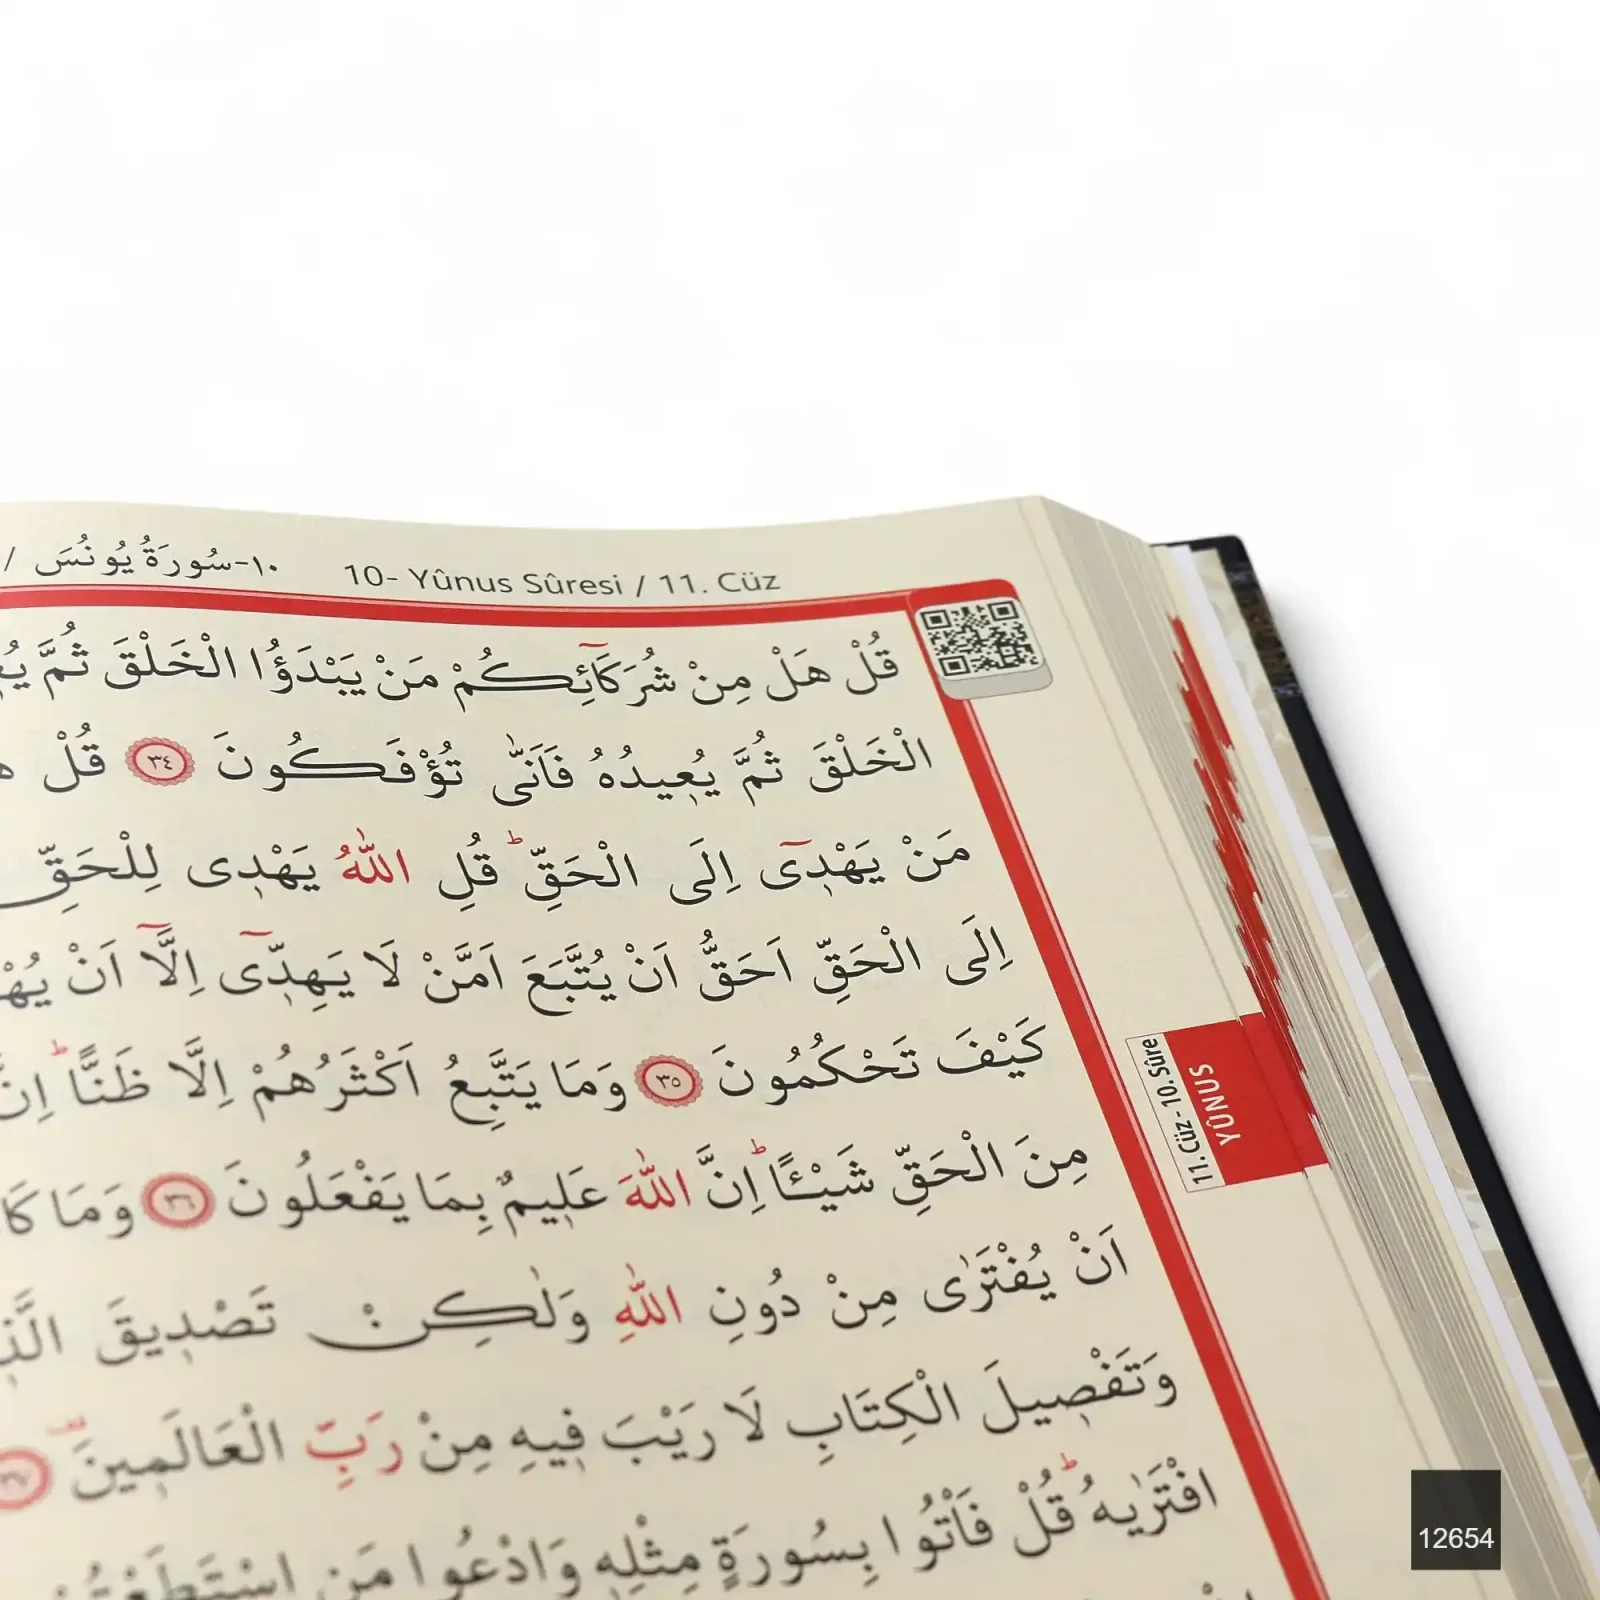 10- Yûnus Sûresi / 11. Cüz
١٠-سُورَةُ يُونُسَ /
قُلْ هَلْ مِنْ شُرَكَٓائِكُمْ مَنْ يَبْدَؤُا الْخَلْقَ ثُمَّ
الْخَلْقَ ثُمَّ يُعٖيدُهُ فَاَنّٰى تُؤْفَكُونَ ٣٤ قُلْ
مَنْ يَهْدٖٓى اِلَى الْحَقِّؕ قُلِ اللّٰهُ يَهْدٖى لِلْحَقِّ
اِلَى الْحَقِّ اَحَقُّ اَنْ يُتَّبَعَ اَمَّنْ لَا يَهِدّٖٓى اِلَّٓا اَنْ
كَيْفَ تَحْكُمُونَ ٣٥ وَمَا يَتَّبِعُ اَكْثَرُهُمْ اِلَّا ظَنًّاؕ
مِنَ الْحَقِّ شَيْـًٔاؕ اِنَّ اللّٰهَ عَلٖيمٌ بِمَا يَفْعَلُونَ ٣٦ وَمَا
اَنْ يُفْتَرٰى مِنْ دُونِ اللّٰهِ وَلٰكِنْ تَصْدٖيقَ
وَتَفْصٖيلَ الْكِتَابِ لَا رَيْبَ فٖيهِ مِنْ رَبِّ الْعَالَمٖينَ ٣٧
افْتَرٰيهُؕ قُلْ فَاْتُوا بِسُورَةٍ مِثْلِهٖ وَادْعُوا مَنِ
11. Cüz - 10. Sûre
YÛNUS
12654